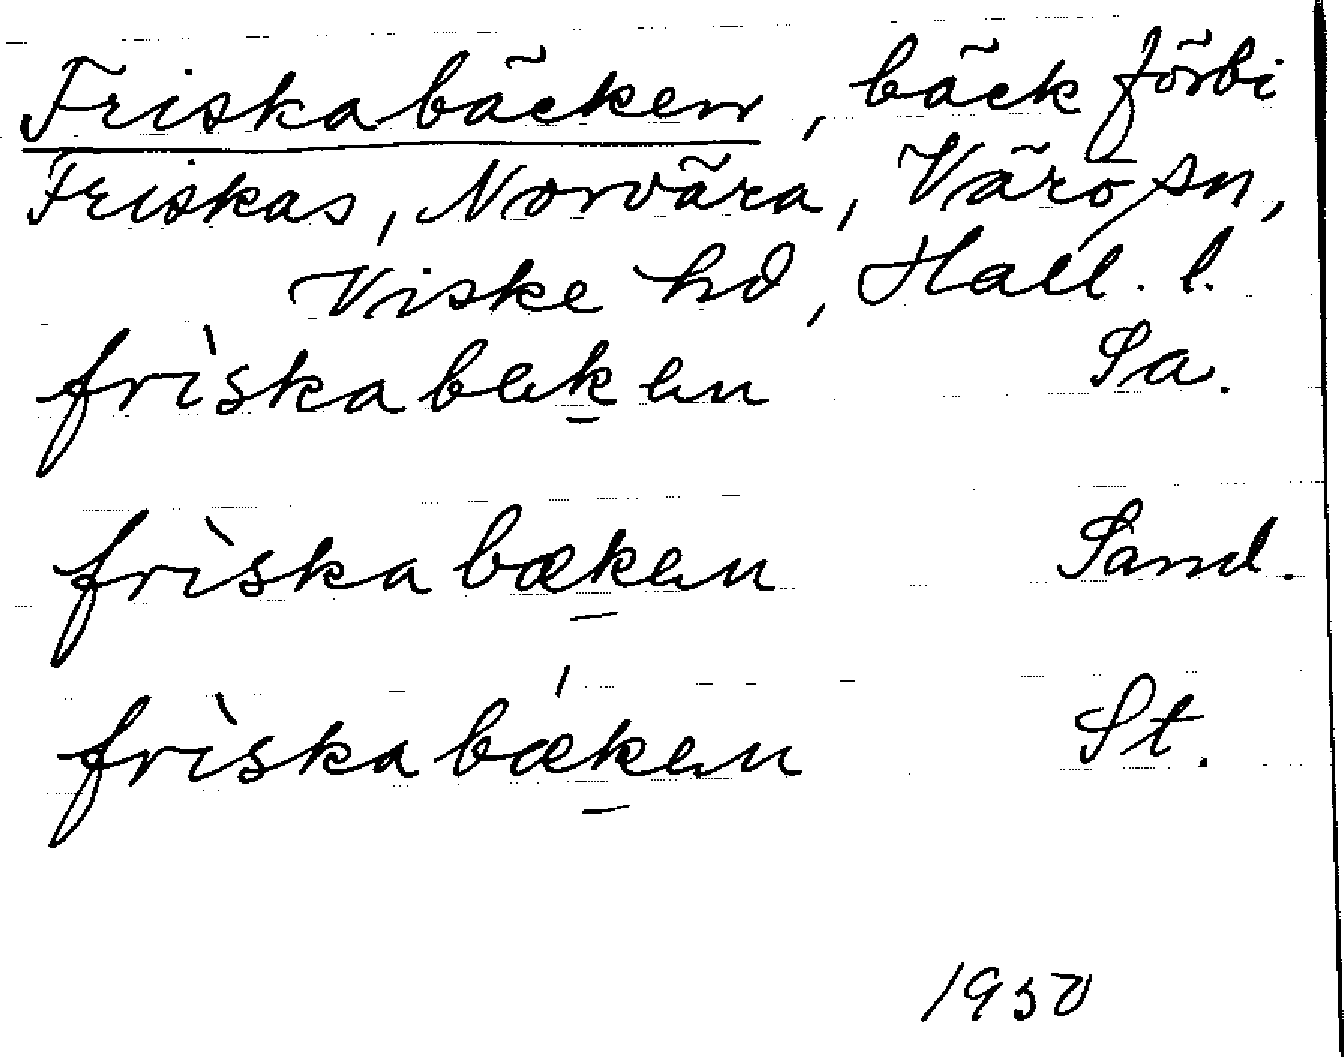 Friskabäcken, bäck förbi
Friskas, Norvära, Värö sn,
Viske hd, Hall. l.
frìskabeken Sa.
frìskabæken Sand.
frìskabǽken St.
1950